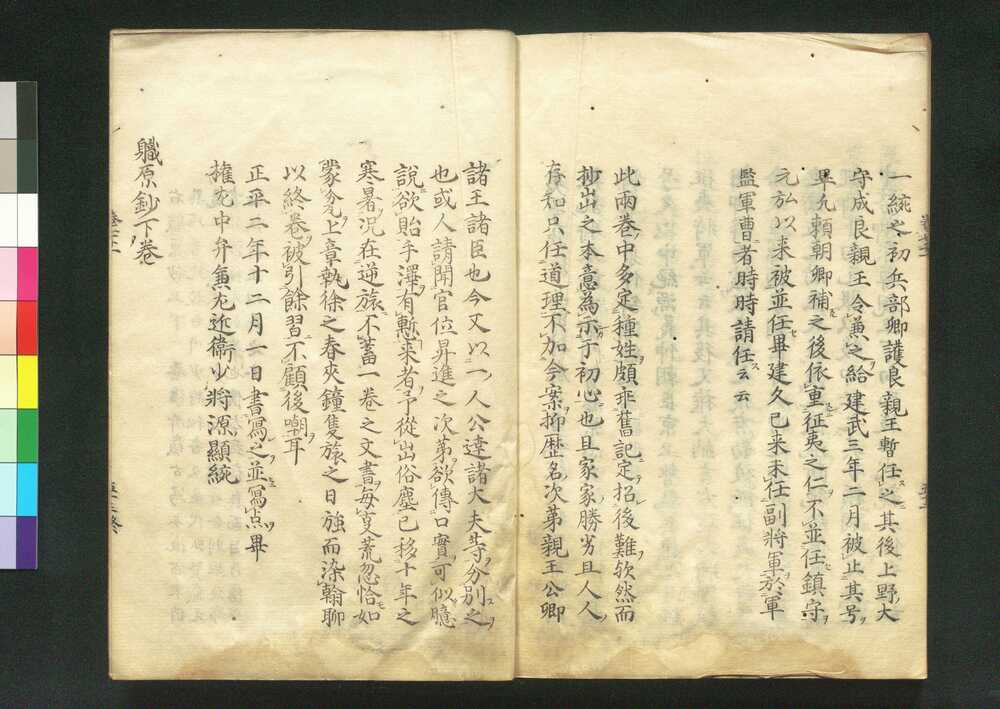 一統之初兵部卿護良親王暫任之其後上野大
守成良親王令兼之給建武三年二月被止其号
畢凢頼朝卿補之後依重征夷之仁不並任鎮守
元弘以来被並任畢建久已来未任副将軍於軍
監軍曹者時時請任云云
此兩巻中多定種姓頗乖舊記定招後難欤然而
抄出之本意為示于初心也且家家勝劣且人人
存知只任道理不加今案抑歴名次第親王公卿
諸王諸臣也今又以一人公達諸大夫等分別之
也或人請聞官位昇進之次第欲傳口實可似臆
説欲貽手澤有慙来者予從出俗塵已移十年之
寒暑况在逆旅不蓄一巻之文書毎事荒忽恰如
蒙分上章執徐之春夾鐘隻旅之日強而染翰聊
以終巻被引餘習不顧後嘲耳
正平二年十二月一日書寫之並寫点畢
権左中弁兼左近衛少将源顯統
軄原鈔下巻